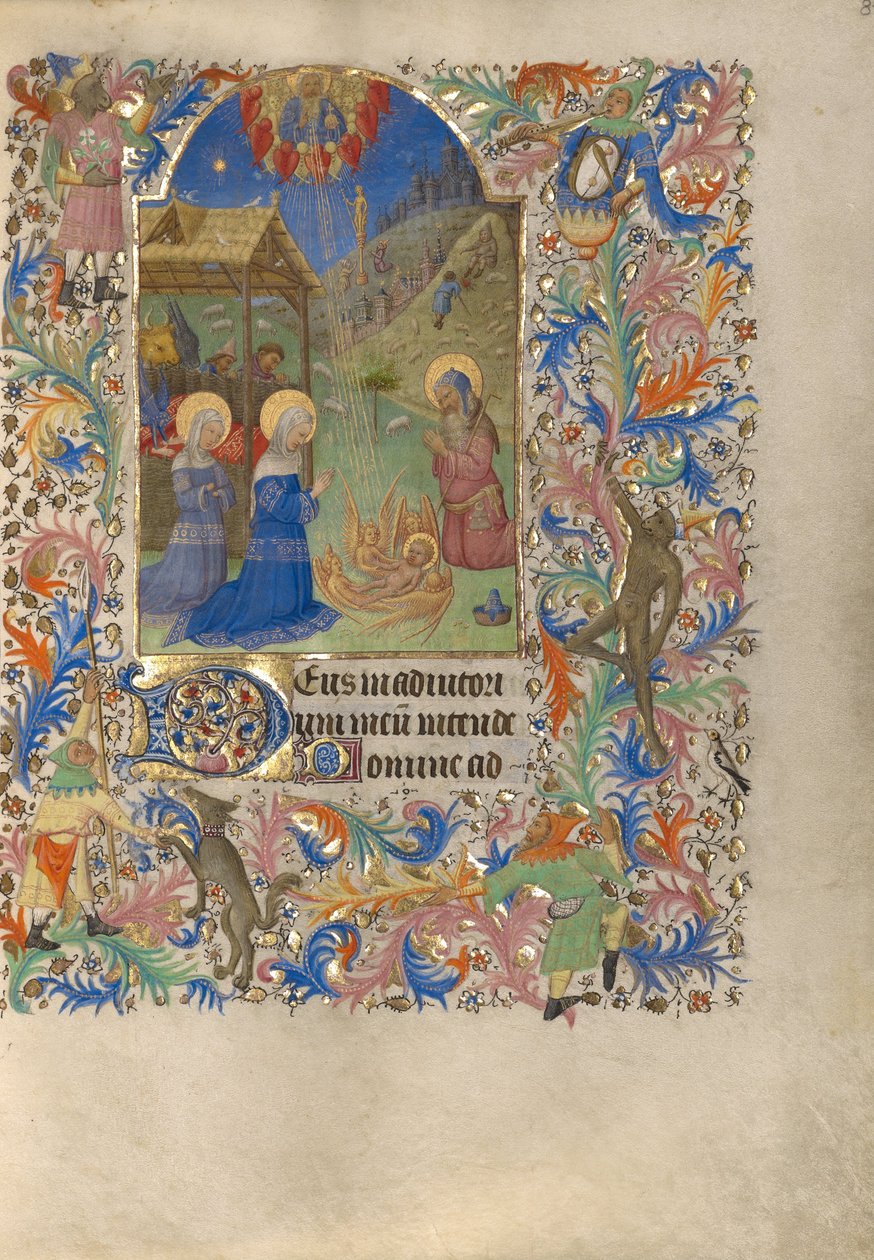 Deus in adiutori
um meū intende
Domine ad
8